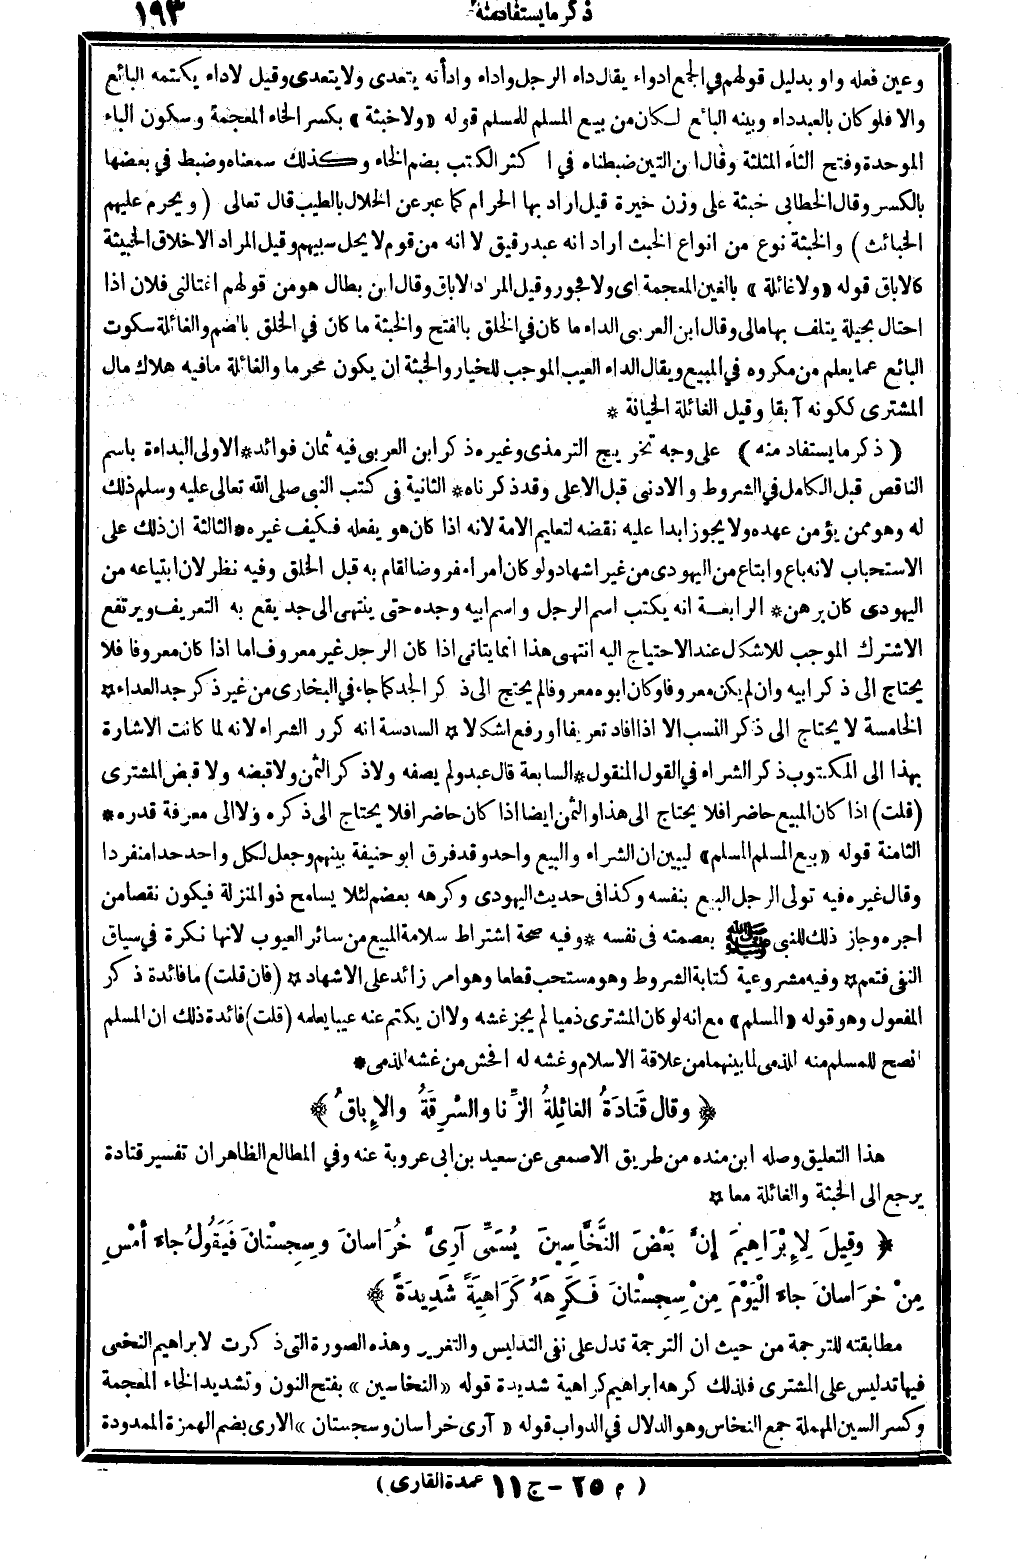 ذكر ما يستفاد منه
١٩٣
وعين فعله واو بدليل قولهم في الجمع ادواء يقال داء الرجل واداء وادأته يتعدى ولا يتعدى وقيل لاداء يكتمه البائع
والا فلو كان بالعبد داء وبينه البائع لكان من بيع المسلم للمسلم قوله «ولا خبثة» بكسر الخاء المعجمة وسكون الباء
الموحدة وفتح الثاء المثلثة وقال ابن التين ضبطناه في اكثر الكتب بضم الخاء وكذلك سمعناه وضبط في بعضها
بالكسر وقال الخطابى خبثة على وزن خيرة قيل اراد بها الحرام كما عبر عن الحلال بالطيب قال تعالى (ويحرم عليهم
الخبائث) والخبثة نوع من انواع الخبث اراد انه عبد رقيق لا انه من قوم لا يحل سبيهم وقيل المراد الاخلاق الخبيثة
كالاباق قوله «ولا غائلة» بالغين المعجمة اى ولا فجور وقيل المراد الاباق وقال ابن بطال هو من قولهم اغتالنى فلان اذا
احتال بحيلة يتلف بها مالى وقال ابن العربى الداء ما كان في الخلق بالفتح والخبثة ما كان في الخلق بالضم والغائلة سكوت
البائع عما يعلم من مكروه في المبيع ويقال الداء العيب الموجب للخيار والخبثة ان يكون محرما والغائلة مافيه هلاك مال
المشترى ككونه آبقا وقيل الغائلة الخيانة *
(ذكر ما يستفاد منه) على وجه تخريج الترمذى وغيره ذكر ابن العربى فيه ثمان فوائد * الاولى البداءة باسم
الناقص قبل الكامل في الشروط والادنى قبل الاعلى وقد ذكرناه * الثانية فى كتب النبى صلى الله تعالى عليه وسلم ذلك
له وهو ممن يؤمن عهده ولا يجوز ابدا عليه نقضه لتعليم الامة لانه اذا كان هو يفعله فكيف غيره * الثالثة ان ذلك على
الاستحباب لانه باع وابتاع من اليهودى من غير اشهاد ولو كان أمرا مفروضا لقام به قبل الخلق وفيه نظر لان ابتياعه من
اليهودى كان برهن * الرابعة انه يكتب اسم الرجل واسم ابيه وجده حتى ينتهى الى جد يقع به التعريف ويرتفع
الاشترك الموجب للاشكال عند الاحتياج اليه انتهى هذا انما يتاتى اذا كان الرجل غير معروف اما اذا كان معروفا فلا
يحتاج الى ذكر ابيه وان لم يكن معروفا وكان ابوه معروفا لم يحتج الى ذكر الجد كما جاء في البخارى من غير ذكر جد العداء *
الخامسة لا يحتاج الى ذكر النسب الا اذا افاد تعريفا او رفع اشكالا * السادسة انه كرر الشراء لانه لما كانت الاشارة
بهذا الى المكتوب ذكر الشراء في القول المنقول * السابعة قال عبد ولم يصفه ولا ذكر الثمن ولا قبضه ولا قبض المشترى
(قلت) اذا كان المبيع حاضرا فلا يحتاج الى هذا والثمن ايضا اذا كان حاضرا فلا يحتاج الى ذكره ولا الى معرفة قدره *
الثامنة قوله «بيع المسلم المسلم» ليبين ان الشراء والبيع واحد وقد فرق ابو حنيفة بينهم وجعل لكل واحد حدا منفردا
وقال غيره فيه تولى الرجل البيع بنفسه وكذا فى حديث اليهودى وكرهه بعضهم لئلا يسامح ذو المنزلة فيكون نقصا من
اجره وجاز ذلك للنبى ﷺ بعصمته فى نفسه * وفيه صحة اشتراط سلامة المبيع من سائر العيوب لانها نكرة في سياق
النفى فتعم * وفيه مشروعية كتابة الشروط وهو مستحب قطعا وهو امر زائد على الاشهاد * (فان قلت) ما فائدة ذكر
المفعول وهو قوله «المسلم» مع انه لو كان المشترى ذميا لم يجز غشه ولا ان يكتم عنه عيبا يعلمه (قلت) فائدة ذلك ان المسلم
انصح للمسلم منه للذمى لما بينهما من علاقة الاسلام وغشه له افحش من غشه للذمى *
﴿ وقال قَتَادَةُ الغائِلةُ الزِّنا والسَّرِقَةُ والإِباقُ ﴾
هذا التعليق وصله ابن منده من طريق الاصمعى عن سعيد بن ابى عروبة عنه وفي المطالع الظاهر ان تفسير قتادة
يرجع الى الخبثة والغائلة معا *
﴿ وقِيلَ لِإِبْرَاهِيمَ إِنَّ بَعْضَ النَّخَّاسِينَ يُسَمِّى آرِيَّ خُرَاسانَ وسِجِسْتانَ فَيَقُولُ جاءَ أَمْسِ
مِنْ خرَاسانَ جاءَ الْيَوْمَ مِنْ سِجِسْتانَ فَكَرِهَهُ كَرَاهِيَةً شَدِيدَةً ﴾
مطابقته للترجمة من حيث ان الترجمة تدل على نفى التدليس والتغرير وهذه الصورة التى ذكرت لابراهيم النخعى
فيها تدليس على المشترى فلذلك كرهه ابراهيم كراهية شديدة قوله «النخاسين» بفتح النون وتشديد الخاء المعجمة
وكسر السين المهملة جمع النخاس وهو الدلال في الدواب قوله «آرى خراسان وسجستان» الارى بضم الهمزة الممدودة
(م ٢٥ - ج ١١ عمدة القارى)